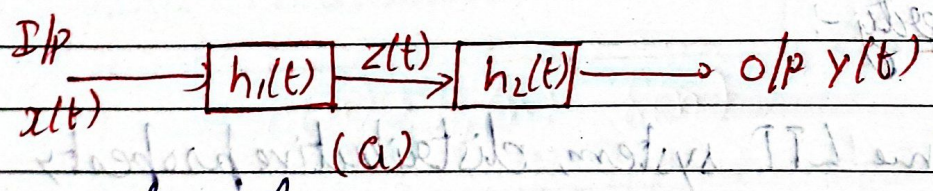 I/P
x(t) h₁(t) z(t) h₂(t) O/P y(t)
(a)